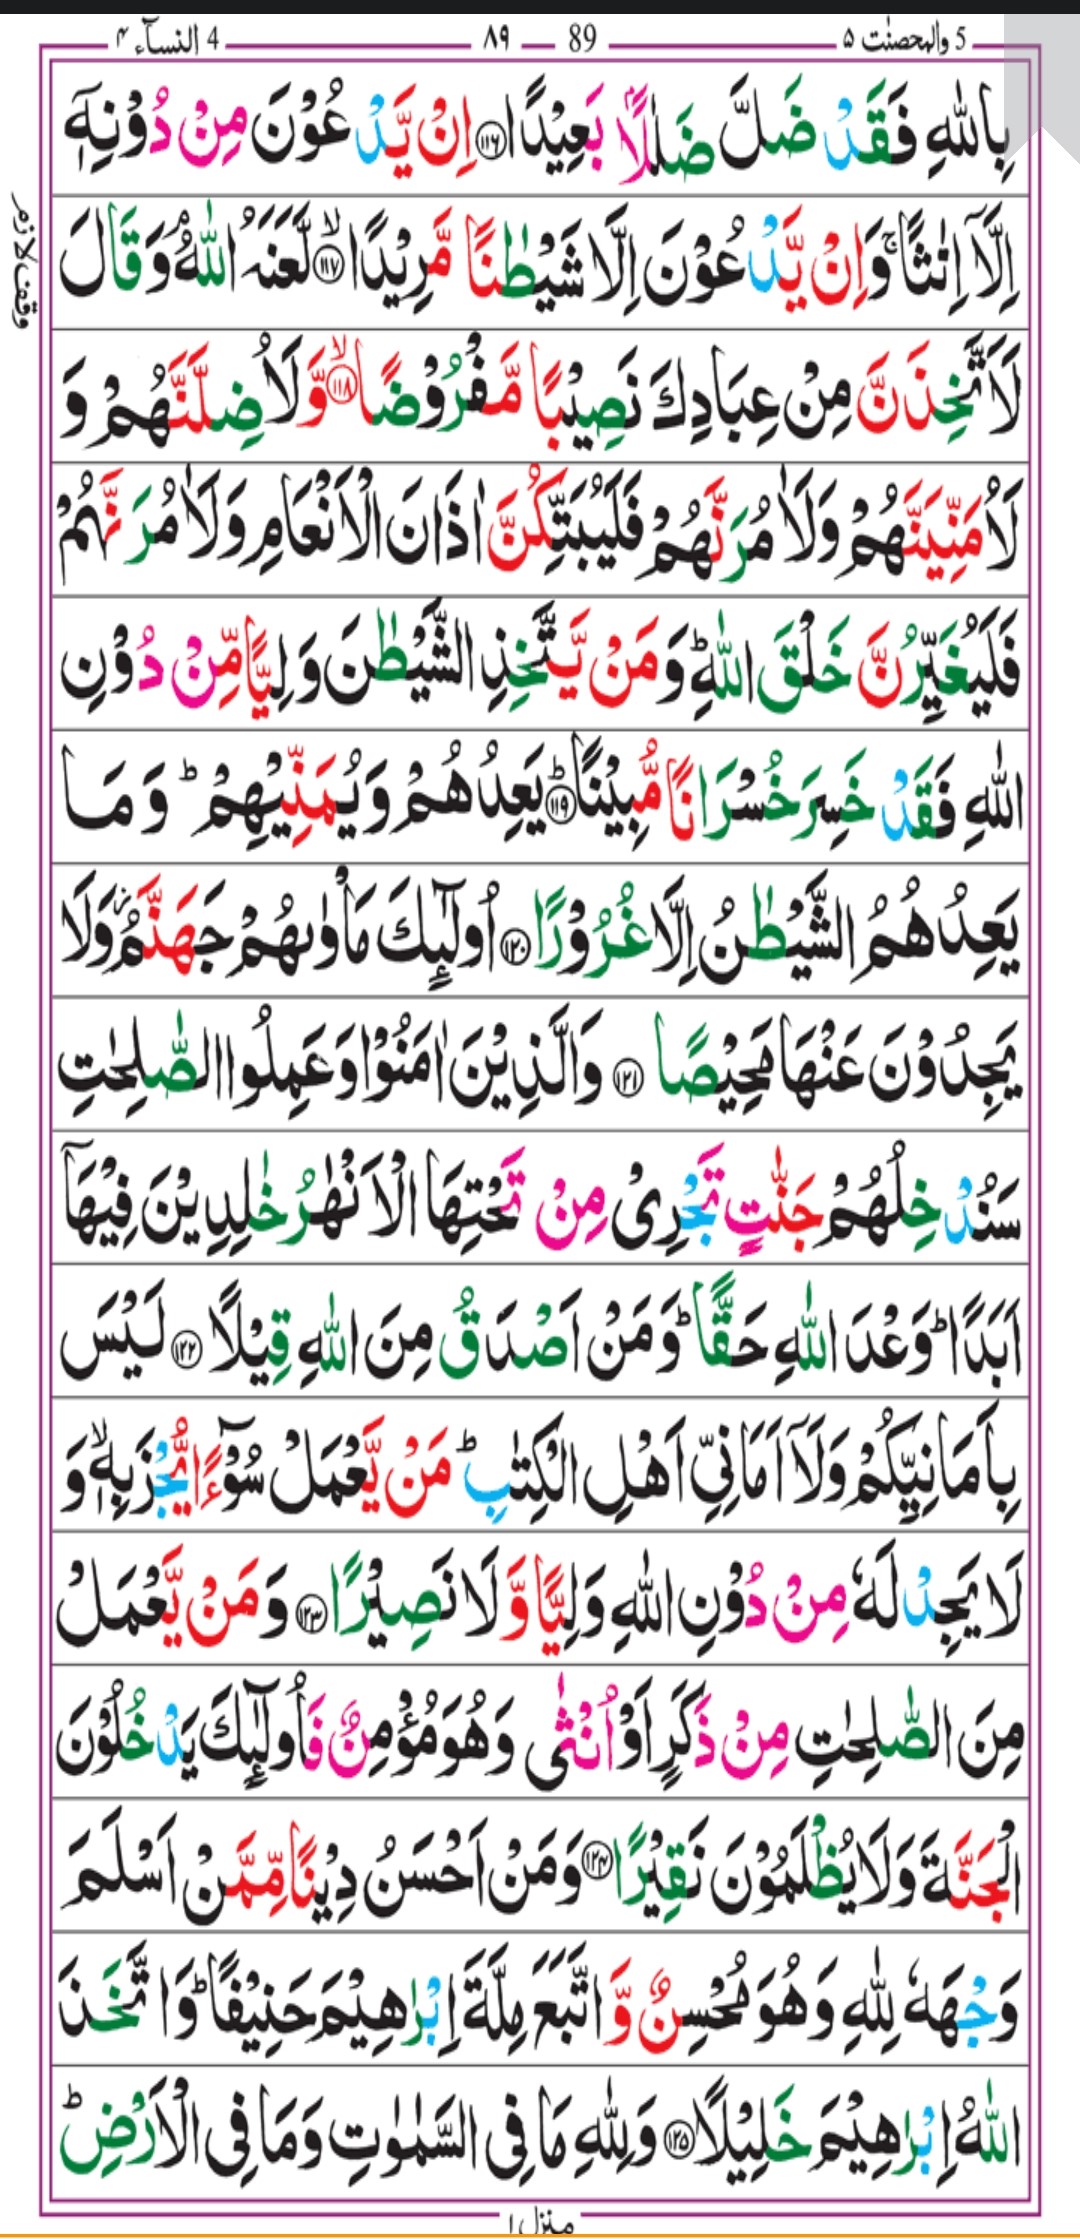 5 والمحصنٰت ۵ 89 ۸۹ 4 النسآء ۴
بِاللّٰهِ فَقَدْ ضَلَّ ضَلٰلًاۢ بَعِيْدًا ۝۱۱۶ اِنْ يَّدْعُوْنَ مِنْ دُوْنِهٖۤ
اِلَّاۤ اِنٰثًا ۚ وَاِنْ يَّدْعُوْنَ اِلَّا شَيْطٰنًا مَّرِيْدًا ۙ۝۱۱۷ لَّعَنَهُ اللّٰهُ ۘ وَقَالَ
وقف لازم
لَاَتَّخِذَنَّ مِنْ عِبَادِكَ نَصِيْبًا مَّفْرُوْضًا ۙ۝۱۱۸ وَّلَاُضِلَّنَّهُمْ وَ
لَاُمَنِّيَنَّهُمْ وَلَاٰمُرَنَّهُمْ فَلَيُبَتِّكُنَّ اٰذَانَ الْاَنْعَامِ وَلَاٰمُرَنَّهُمْ
فَلَيُغَيِّرُنَّ خَلْقَ اللّٰهِ ؕ وَمَنْ يَّتَّخِذِ الشَّيْطٰنَ وَلِيًّا مِّنْ دُوْنِ
اللّٰهِ فَقَدْ خَسِرَ خُسْرَانًا مُّبِيْنًا ؕ۝۱۱۹ يَعِدُهُمْ وَيُمَنِّيْهِمْ ؕ وَمَا
يَعِدُهُمُ الشَّيْطٰنُ اِلَّا غُرُوْرًا ۝۱۲۰ اُولٰٓئِكَ مَاْوٰىهُمْ جَهَنَّمُ ؗ وَلَا
يَجِدُوْنَ عَنْهَا مَحِيْصًا ۝۱۲۱ وَالَّذِيْنَ اٰمَنُوْا وَعَمِلُوا الصّٰلِحٰتِ
سَنُدْخِلُهُمْ جَنّٰتٍ تَجْرِىْ مِنْ تَحْتِهَا الْاَنْهٰرُ خٰلِدِيْنَ فِيْهَاۤ
اَبَدًا ؕ وَعْدَ اللّٰهِ حَقًّا ؕ وَمَنْ اَصْدَقُ مِنَ اللّٰهِ قِيْلًا ۝۱۲۲ لَيْسَ
بِاَمَانِيِّكُمْ وَلَاۤ اَمَانِىِّ اَهْلِ الْكِتٰبِ ؕ مَنْ يَّعْمَلْ سُوْٓءًا يُّجْزَ بِهٖ ۙ وَ
لَا يَجِدْ لَهٗ مِنْ دُوْنِ اللّٰهِ وَلِيًّا وَّلَا نَصِيْرًا ۝۱۲۳ وَمَنْ يَّعْمَلْ
مِنَ الصّٰلِحٰتِ مِنْ ذَكَرٍ اَوْ اُنْثٰى وَهُوَ مُؤْمِنٌ فَاُولٰٓئِكَ يَدْخُلُوْنَ
الْجَنَّةَ وَلَا يُظْلَمُوْنَ نَقِيْرًا ۝۱۲۴ وَمَنْ اَحْسَنُ دِيْنًا مِّمَّنْ اَسْلَمَ
وَجْهَهٗ لِلّٰهِ وَهُوَ مُحْسِنٌ وَّاتَّبَعَ مِلَّةَ اِبْرٰهِيْمَ حَنِيْفًا ؕ وَاتَّخَذَ
اللّٰهُ اِبْرٰهِيْمَ خَلِيْلًا ۝۱۲۵ وَلِلّٰهِ مَا فِى السَّمٰوٰتِ وَمَا فِى الْاَرْضِ ؕ
منزل ۱